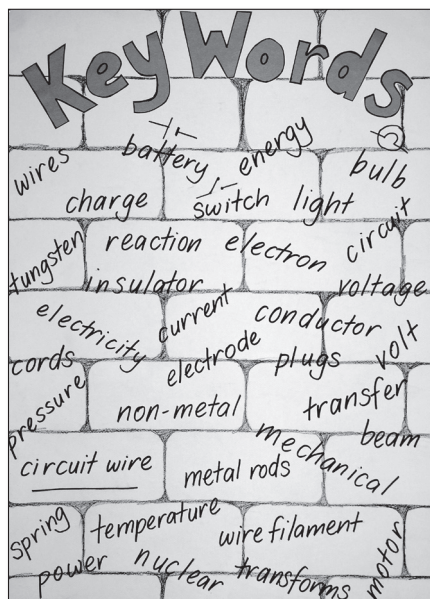 Key Words
battery energy
wires bulb
charge switch light
tungsten reaction electron circuit
insulator voltage
electricity current conductor
cords electrode plugs volt
pressure non-metal transfer
mechanical beam
circuit wire metal rods
spring temperature wire filament
power nuclear transforms motor